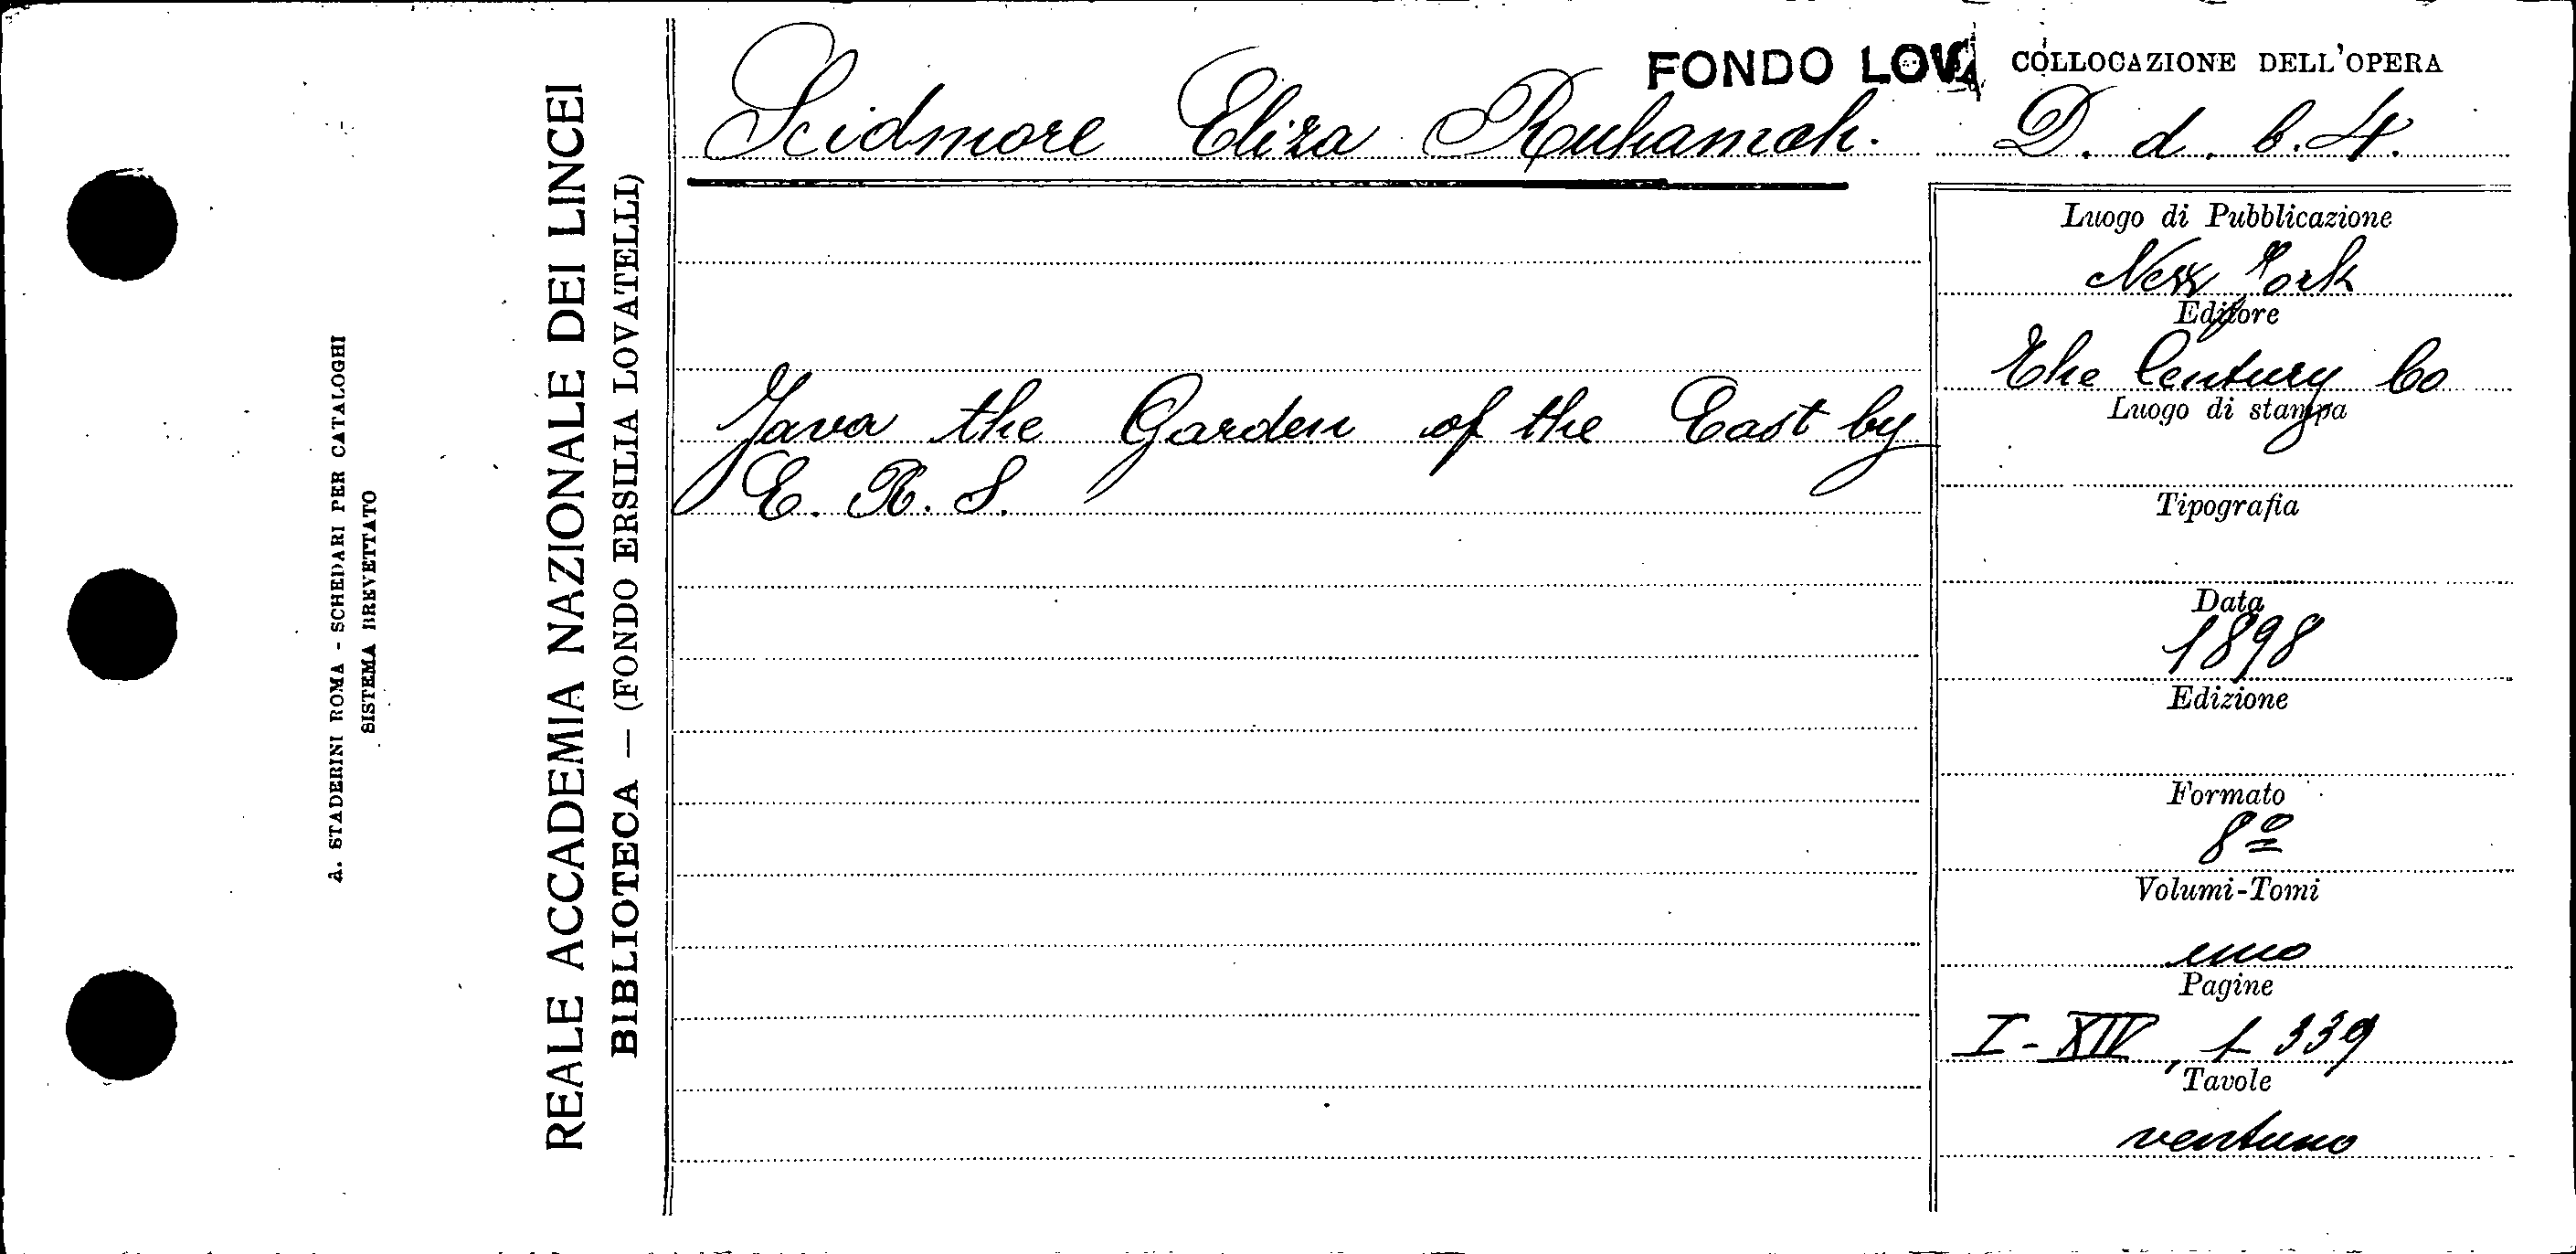 A. STADERINI ROMA - SCHEDARI PER CATALOGHI
SISTEMA BREVETTATO
REALE ACCADEMIA NAZIONALE DEI LINCEI
BIBLIOTECA — (FONDO ERSILIA LOVATELLI)
FONDO LOVA
Scidmore Eliza Ruhamah.
Java the Garden of the East by
E. R. S.
COLLOCAZIONE DELL'OPERA
D. d. b. 4.
Luogo di Pubblicazione
New York
Editore
The Century Co
Luogo di stampa
Tipografia
Data
1898
Edizione
Formato
8º
Volumi-Tomi
uno
Pagine
I-XIV, 1 339
Tavole
ventuno